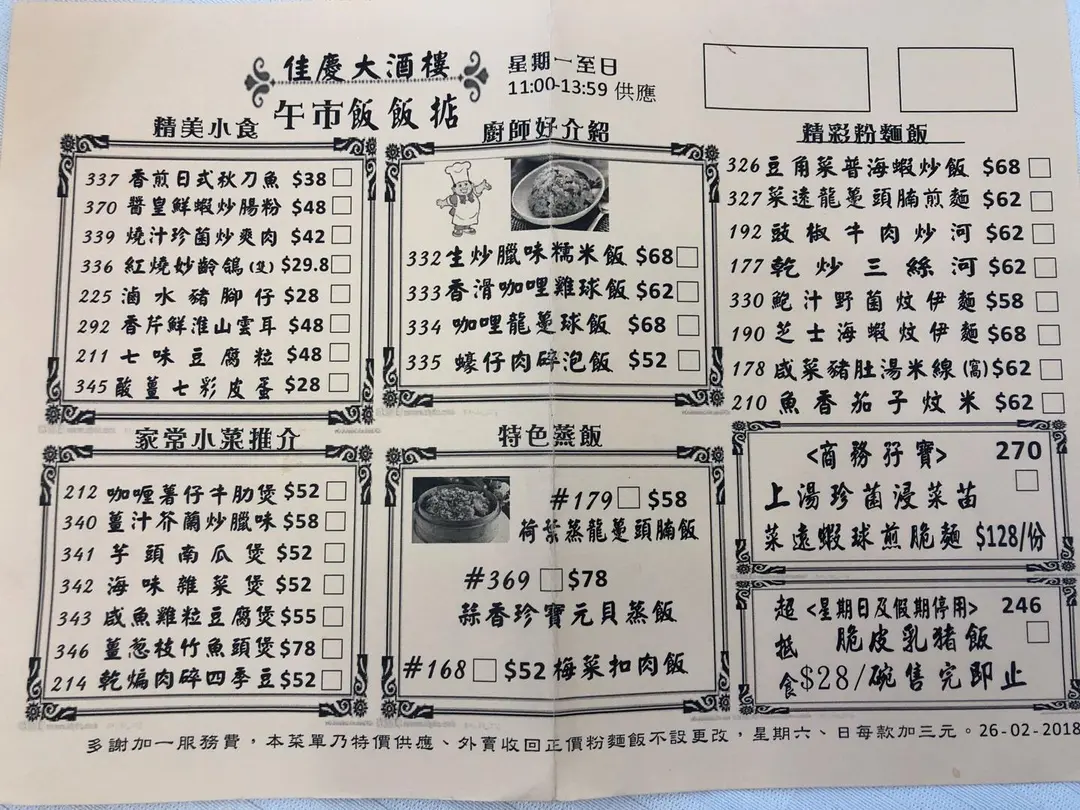 佳慶大酒樓
星期一至日
11:00-13:59 供應
午市飯飯掂
精美小食
337 香煎日式秋刀魚 $38
370 醬皇鮮蝦炒腸粉 $48
339 燒汁珍菌炒爽肉 $42
336 紅燒妙齡鴿(隻) $29.8
225 滷水豬腳仔 $28
292 香芹鮮淮山雲耳 $48
211 七味豆腐粒 $48
345 酸薑七彩皮蛋 $28
廚師好介紹
332 生炒臘味糯米飯 $68
333 香滑咖哩雞球飯 $62
334 咖哩龍躉球飯 $68
335 蠔仔肉碎泡飯 $52
精彩粉麵飯
326 豆角菜普海蝦炒飯 $68
327 菜遠龍躉頭腩煎麵 $62
192 豉椒牛肉炒河 $62
177 乾炒三絲河 $62
330 鮑汁野菌炆伊麵 $58
190 芝士海蝦炆伊麵 $68
178 咸菜豬肚湯米線(窩) $62
210 魚香茄子炆米 $62
家常小菜推介
212 咖喱薯仔牛肋煲 $52
340 薑汁芥蘭炒臘味 $58
341 芋頭南瓜煲 $52
342 海味雜菜煲 $52
343 咸魚雞粒豆腐煲 $55
346 薑葱枝竹魚頭煲 $78
214 乾煸肉碎四季豆 $52
特色蒸飯
#179 $58
荷葉蒸龍躉頭腩飯
#369 $78
蒜香珍寶元貝蒸飯
#168 $52 梅菜扣肉飯
<商務孖寶> 270
上湯珍菌浸菜苗
菜遠蝦球煎脆麵 $128/份
超抵食
<星期日及假期停用> 246
脆皮乳豬飯
$28/碗售完即止
多謝加一服務費，本菜單乃特價供應、外賣收回正價粉麵飯不設更改，星期六、日每款加三元。26-02-2018